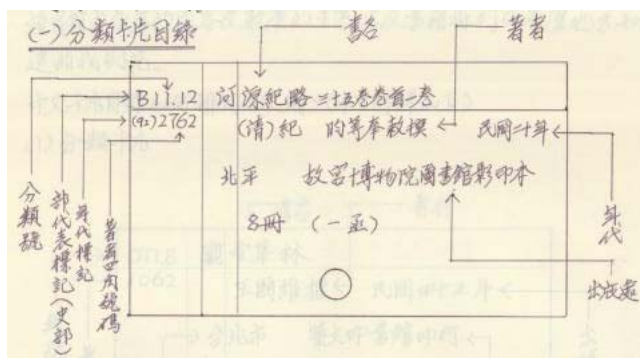 (一)分類卡片目錄
書名
著者
B11.12 河源紀略 三十五卷卷首一卷
(92)2762 (清)紀 昀等奉敕撰 民國二十年
北平 故宮博物院圖書館影印本
8冊 (一函)
分類號
部代表標記(史部)
年代標記
著者四角號碼
年代
出版處